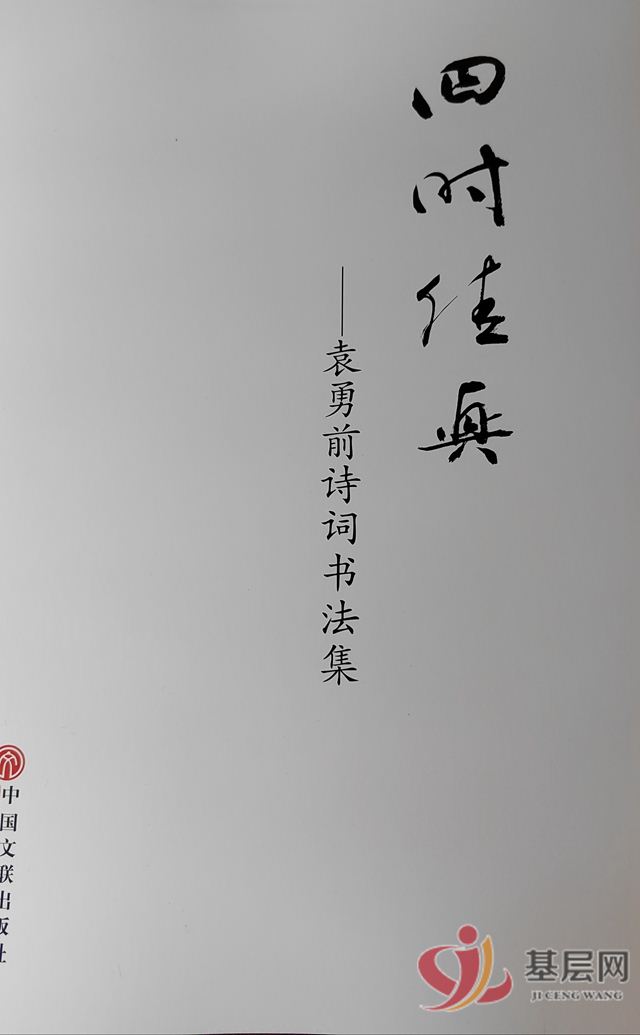 四时佳兴
——袁勇前诗词书法集
中国文联出版社
基层网
JI CENG WANG